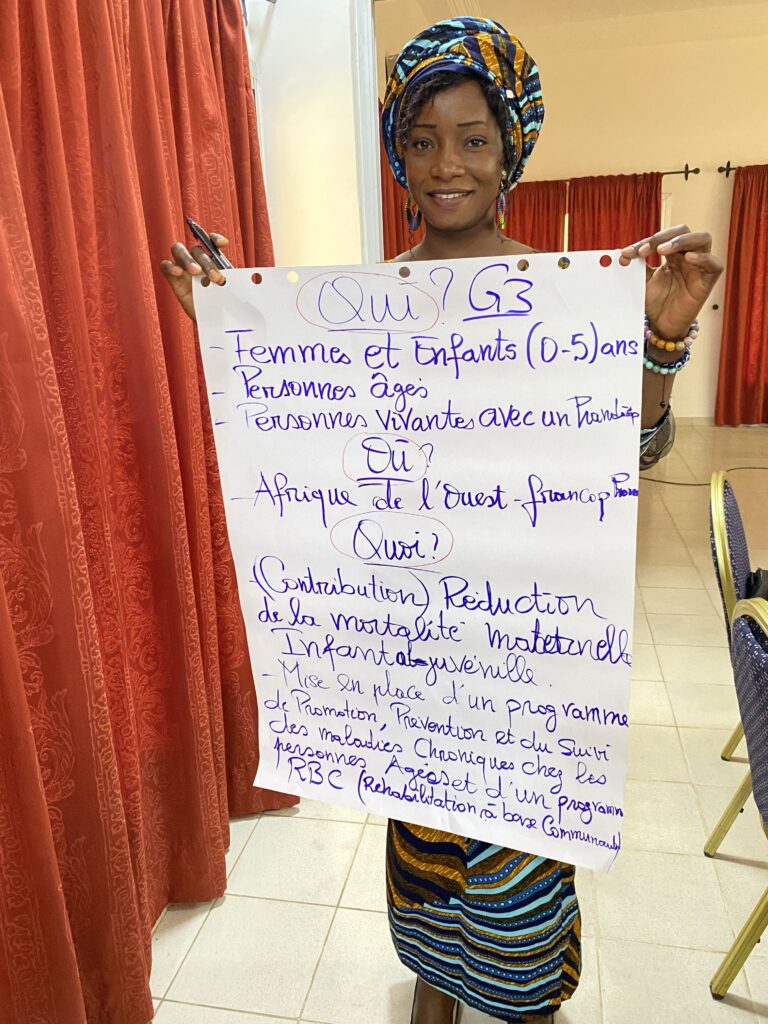 Qui? G3
- Femmes et Enfants (0-5) ans
- Personnes âges
- Personnes vivantes avec un Handicap
Où?
- Afrique de l'Ouest - francop
Quoi?
- (Contribution) Réduction
de la mortalité maternelle
Infanto-juvénille.
- Mise en place d'un programme
de Promotion, Prévention et du Suivi
des maladies Chroniques chez les
personnes Agées et d'un programm
RBC (Réhabilitation à base Communaut